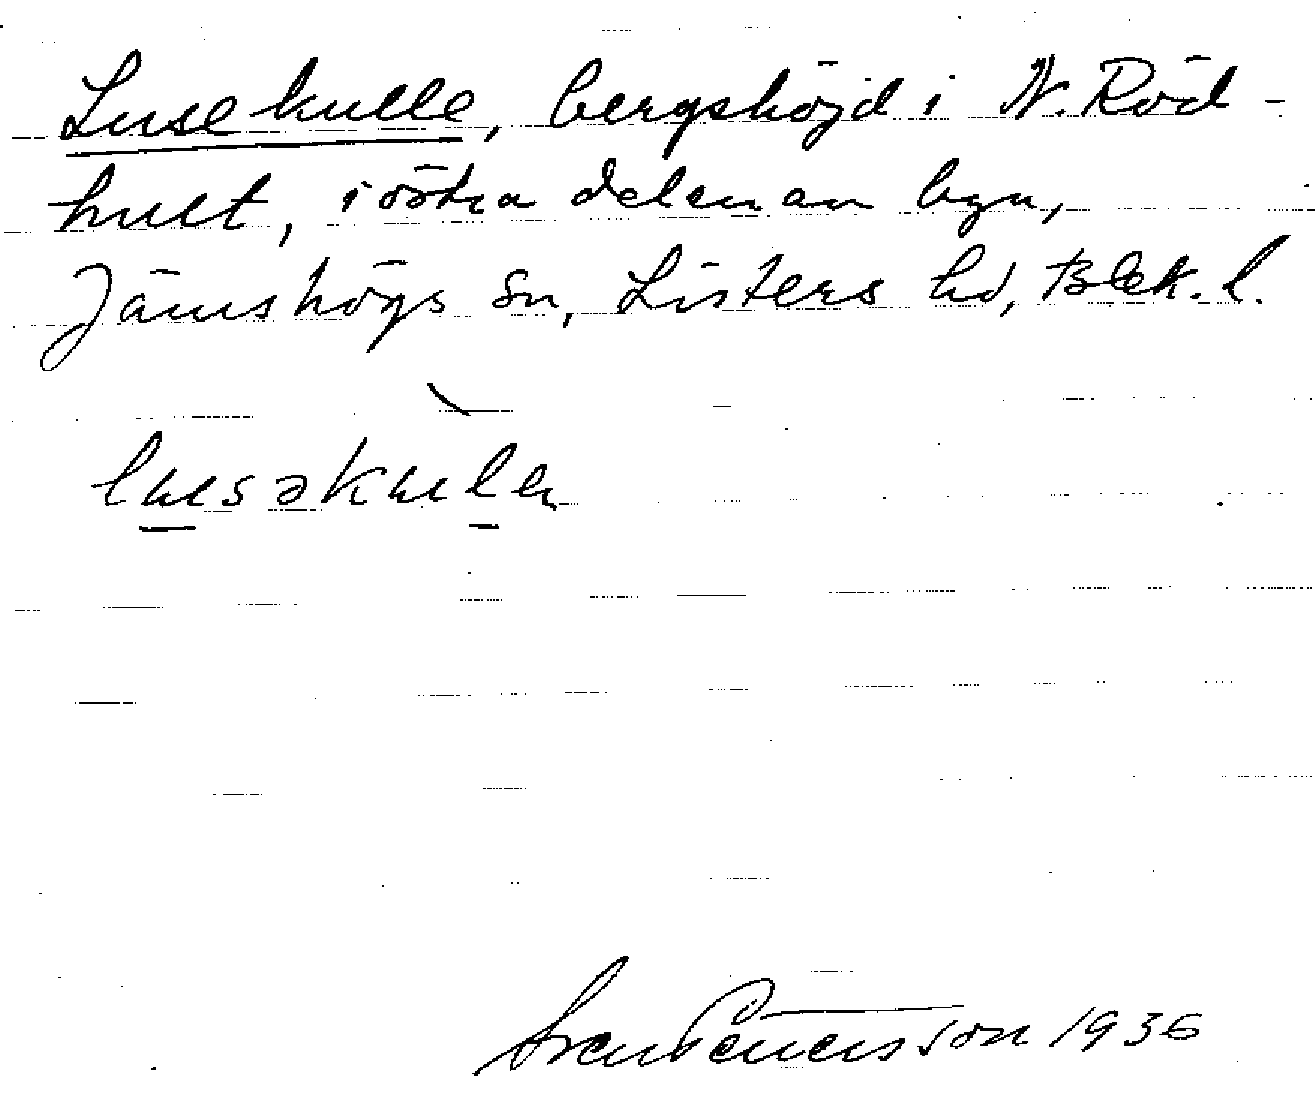 Lusekulle, bergshöjd i N. Röd-
hult, i östra delen av byn,
Jämshögs sn, Listers hd, Blek. l.
lusəkulen
Sven Petersson 1936